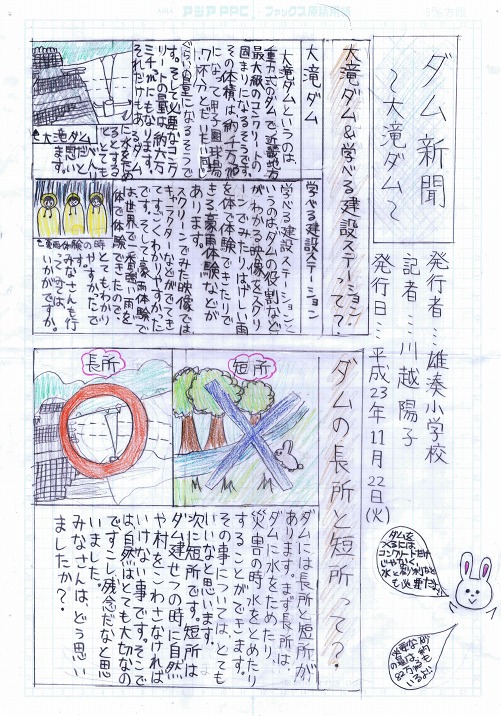 ダム新聞
〜大滝ダム〜
発行者…雄湊小学校
記者…川越陽子
発行日…平成23年11月22日(火)
大滝ダム&学べる建設ステーションって?
大滝ダム
大滝ダムというのは、
重力式のダムで、近畿地方
最大級のコンクリートの
固まりになるそうです。
その体積は、約
になって、甲子園球場
ぐらいの量になるそうで
す。そして必要なコンク
リートの量は、約六万
ミキサーにもなります。
それだけもあるダム。
大滝ダム
とても
思い
ます。
学べる建設ステーション
学べる建設ステーションと
いうのは、ダムの役割など
がわかる映像をスクリ
ーンでみたり、はげしい雨
を体で体験できたりで
きる豪雨体験などが
あります。
スクリーンでみた映像では、
キャラクターなどがでてき
てすごくわかりやすかった
です。そして、豪雨体験で
は、世界で一番強い雨を
体で体験できたので、
とてもわかり
やすかったで
す。
みなさんも行
ってみては、
いかがですか。
豪雨体験の時
ダムの長所と短所って?
短所
長所
ダムには長所と短所が
あります。まず長所は、
ダムに水をためたり、
災害の時、水をとめたり
することができます。
その事については、とても
いいなと思います。
次に短所です。短所は
ダム建せつの時に自然
や村をこわさなければ
いけない事です。そこで
は、自然はとても大切なの
ですこし残念だなと思
いました。
みなさんは、どう思い
ましたか?
ダムを
つくるには
コンクリートだけ
じゃなく、
水と砂利など
も必要だよ。